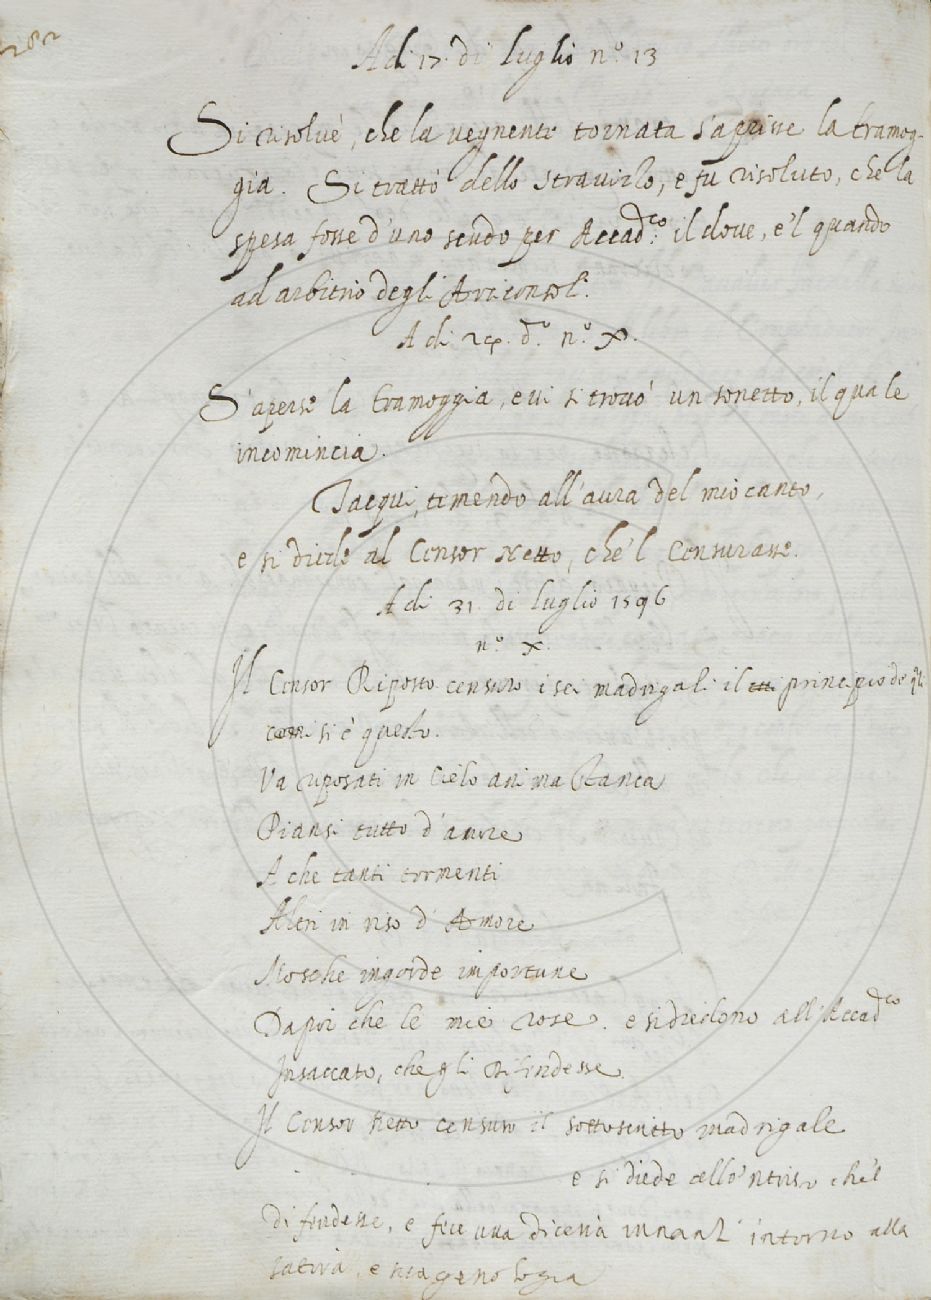 282
Adi 17. di luglio n.° 13
Si risolvé, che la vegnente tornata s'aprisse la tramog-
gia. Si trattò dello stravizzo, e fu risoluto, che la
spesa fosse d'uno scudo per Accad.co il dove, e'l quando
ad arbitrio degli Arciconsoli.
Adi 24. d.° n.° X.
S'aperse la tramoggia, e vi si trovò un sonetto, il quale
incomincia.
Tacqui, temendo all'aura del mio canto,
e si diede al Censor Netto, che'l Censurasse.
Adi 31. di luglio 1596
n.° X.
Il Censor Riposto censurò i sei madrigali il principio de quali
si è questo.
Va riposati in Cielo anima stanca
Piansi tutto d'amore
A che tanti tormenti
Altri in riso d'Amore
Mosche ingorde importune
Dapoi che le mie rose. e si diedono all'Accad.co
Insaccato, che gli difendesse.
Il Censor Netto censurò il sottoscritto madrigale
e si diede allo'ntriso che'l
difendesse, e fece una diceria innanzi intorno alla
satira, e